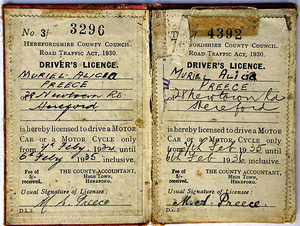 No. 3/ 3296
HEREFORDSHIRE COUNTY COUNCIL
ROAD TRAFFIC ACT, 1930.
DRIVER'S LICENCE.
MURIEL ALICIA
PREECE
28 Newtown Rd
Hereford
is hereby licensed to drive a MOTOR
CAR or a MOTOR CYCLE only
from 7th Feby. 1934 until
6th Feby 1935 inclusive.
Fee of 5/- received.
THE COUNTY ACCOUNTANT,
HIGH TOWN,
HEREFORD.
Usual Signature of Licensee:
M. A. Preece
D.L.3.
4392
HEREFORDSHIRE COUNTY COUNCIL
ROAD TRAFFIC ACT, 1930.
DRIVER'S LICENCE.
MURIEL Alicia
PREECE
28 Newtown Rd
Hereford
is hereby licensed to drive a MOTOR
CAR or a MOTOR CYCLE only
from 7th Feb 1935 until
6th Feb 1936 inclusive.
Fee of 5/- received.
THE COUNTY ACCOUNTANT,
HIGH TOWN,
HEREFORD.
Usual Signature of Licensee:
M. A. Preece.
D.L.3.